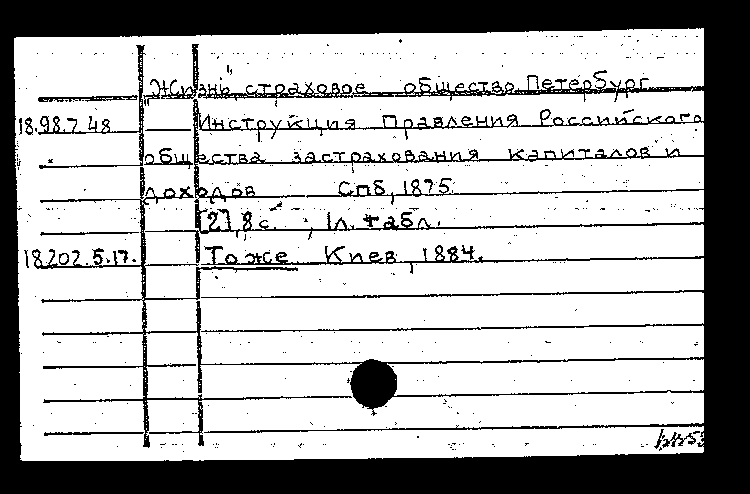 "Жизнь" страховое общество Петербург
18.98.7.48 Инструкция Правления Российского
общества застрахования капиталов и
доходов СПб, 1875.
[2], 8 с. ; 1 л. табл.
18.202.5.17. То же Киев, 1884.